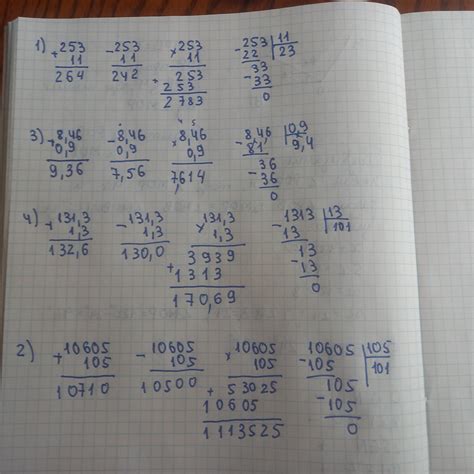 1) +253 -253 ×253 -253 |11
11 11 11 22 23
264 242 253 33
+ 253 -33
2783 0
4 5
3) +8,46 -8,46 ×8,46 -8,46 |0,9
0,9 0,9 0,9 81 9,4
9,36 7,56 7,614 36
-36
0
4) +131,3 -131,3 ×131,3 -1313 |13
1,3 1,3 1,3 13 101
132,6 130,0 3939 13
+1313 -13
170,69 0
2) +10605 -10605 ×10605 10605 |105
105 105 105 -105 101
10710 10500 +53025 105
10605 -105
1113525 0